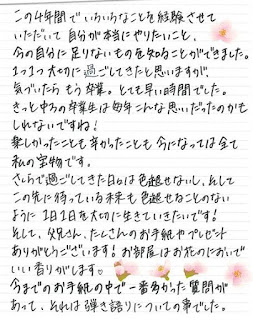 この4年間でいろいろなことを経験させて
いただいて自分が本当にやりたいこと、
今の自分に足りないものを知ることができました。
1つ1つ大切に過ごしてきたと思いますが、
気づいたらもう卒業。とても早い時間でした。
きっと中々の卒業生は毎年こんな思いだったのかも
しれないですね!
楽しかったことも辛かったことも今になっては全て
私の宝物です。
さくらで過ごしてきた日々は色褪せないし、そして
この先に待っている未来も色褪せることのない
ように1日1日を大切に生きていきたいです!
そして、父兄さん、たくさんのお手紙やプレゼント
ありがとうございます!お部屋はお花のにおいで
いい香りがします♡
今までのお手紙の中で一番多かった質問が
あって、それは弾き語りについての事でした。